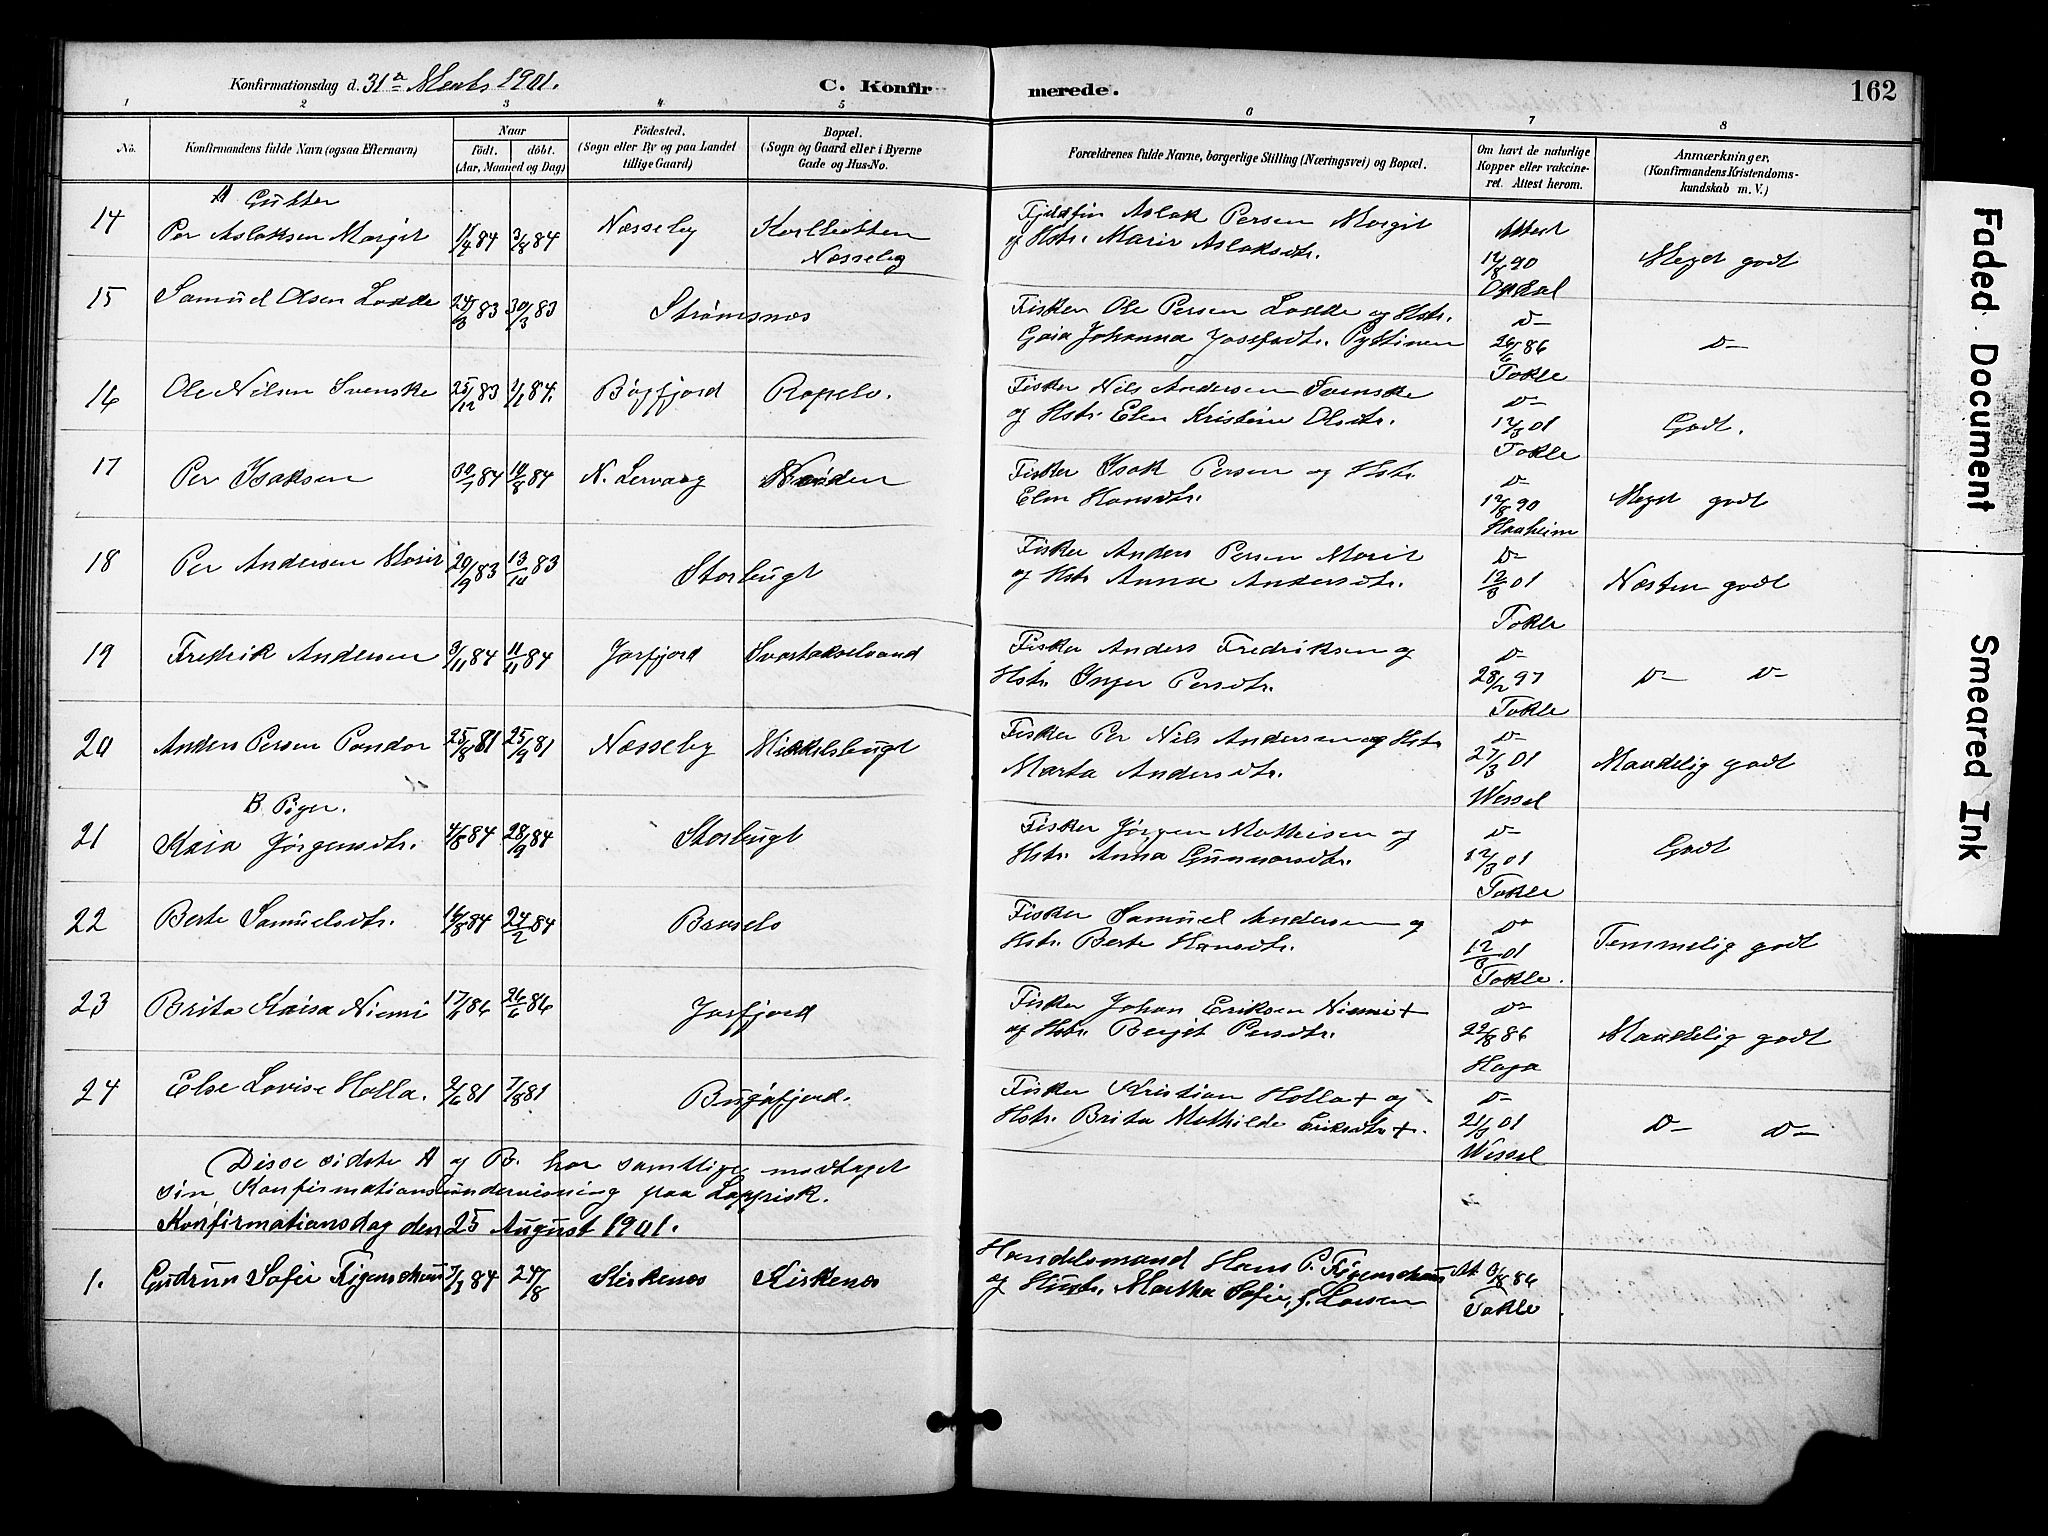 Konfirmationsdag d. 31te Marts 1901. C. Konfirmerede. 162
1 2 3 4 5 6 7 8
No. Konfirmandens fulde Navn (ogsaa Efternavn) Naar födt. döbt. (Aar, Maaned og Dag) Födested. (Sogn eller By og paa Landet tillige Gaard) Bopæl. (Sogn og Gaard eller i Byerne Gade og Hus-No. Forældrenes fulde Navne, borgerlige Stilling (Næringsvei) og Bopæl. Om havt de naturlige Kopper eller vakcineret. Attest herom. Anmærkninger, (Konfirmandens Kristendomskundskab m. V.)
A Gutter
14 Per Aslaksen Margit 84 3/8 84 Næsseby Karlbotten Næsseby Fjeldfin Aslak Persen Margit
og Hstr. Marit Aslaksdtr. Attest 12/8 90 Meget godt
15 Samuel Olsen Ladde 24/3 83 30/3 83 Strømsnæs Fisker Ole Persen Ladde og Hstr.
Johanna Josefsdtr. D- 26/6 86 Tokle D-
16 Ole Nilsen Svenske 25/12 83 1/1 84. Bøgfjord Ropelv. Fisker Nils Andersen Svenske
og Hstr. Elen Kristine Olsdtr. D- 12/3 01 Tokle Godt.
17 Per Isaksen 30/7 84 10/8 84 N. Lervaag Fisker Isak Persen og Hstr.
Elen Hansdtr. D- 12/8 90 Haaheim Meget godt
18 Per Andersen Marit 20/9 83 13/10 83 Storbugt Fisker Anders Persen Marit
og Hstr. Anna Andersdtr. D- 12/3 01 Tokle Næsten godt
19 Fredrik Andersen 3/11 84 11/11 84 Jarfjord Svartakselvand Fisker Anders Fredriksen og
Hstr. Inger Persdtr. D- 28/2 97 Tokle D- D-
20 Anders Persen Pandor 25/8 81 25/9 81 Næsseby Mikkelsbugt Fisker Per Nils Andersen og Hstr
Marta Andersdtr. D- 27/3 01 Wessel Maadelig godt
B. Piger.
21 Kaia Jørgensdtr. 4/8 84 28/9 84 Storbugt Fisker Jørgen Mathisen og
Hstr. Anna Gunnarsdtr. D- 12/3 01 Tokle Godt
22 Berte Samuelsdtr. 84 24/2 84 Fisker Samuel Andersen og
Hstr. Berte Hansdtr. D- 12/3 01 Tokle. Temmelig godt
23 Brita Kaisa Niemi 86 26/6 86 Jarfjord Fisker Johan Eriksen Niemi +
og Hstr. Bergit Persdtr. D- 22/8 86 Haga Maadelig godt
24 Else Lovise Halla. 2/6 81 7/8 81 Bugøfjord. Fisker Kristian Holla + og
Hstr. Brita Mathilde Eriksdtr +. D- 21/3 01 Wessel D- D-
Disse sidste A og B. har samtlige modtaget
sin Konfirmationsundervisning paa Lappisk.
Konfirmationsdag den 25 August 1901.
1. Gudrun Sofie Figenschau 7/7 84 24/8 Kirkenæs Kirkenæs Handelsmand Hans P. Figenschau
og Hustr. Martha Sofie, f. Larsen At. 3/8 86 Tokle
Faded Document
Smeared Ink